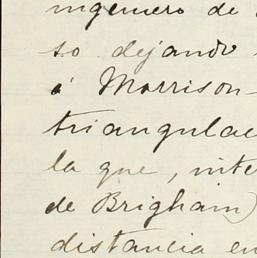 ingeniero de
so dejando
á Morrison-
triangulac
la que, inte
de Brigham)
distancia en